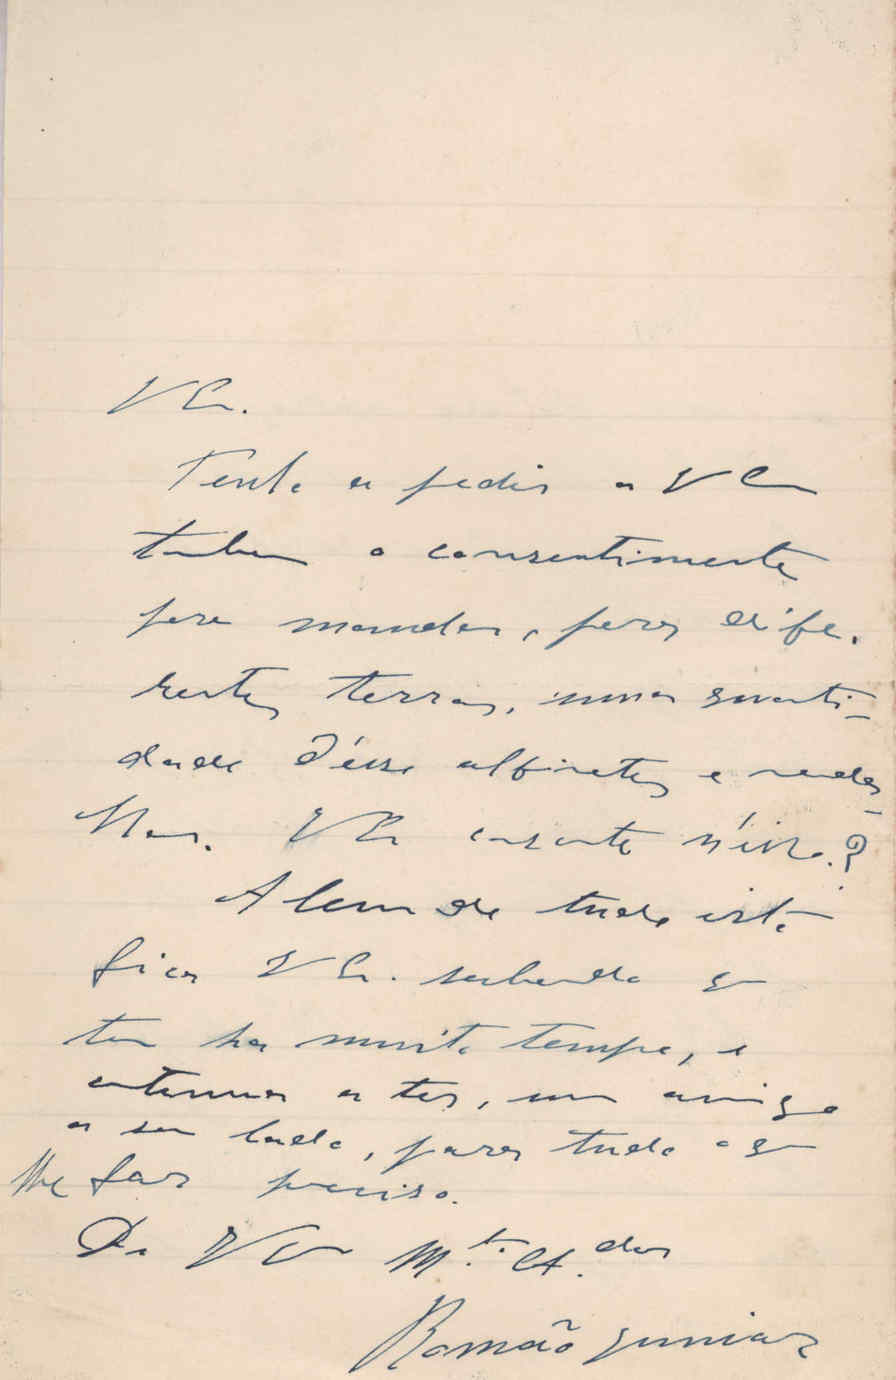 V Ex.
Tenho a pedir a V Ex
tambem o consentimento
para mandar, para dife-
rentes terras, uma quanti-
dade d'esses alfinetes e meda-
lhas. V Ex consente n'isso?
Alem de tudo isto
fica V Ex. sabendo q
tem ha muito tempo, e
continua a ter, um amigo
a seu lado, para tudo o q
lhe for preciso.
De V Ex M.to At. dor
Romão Junior